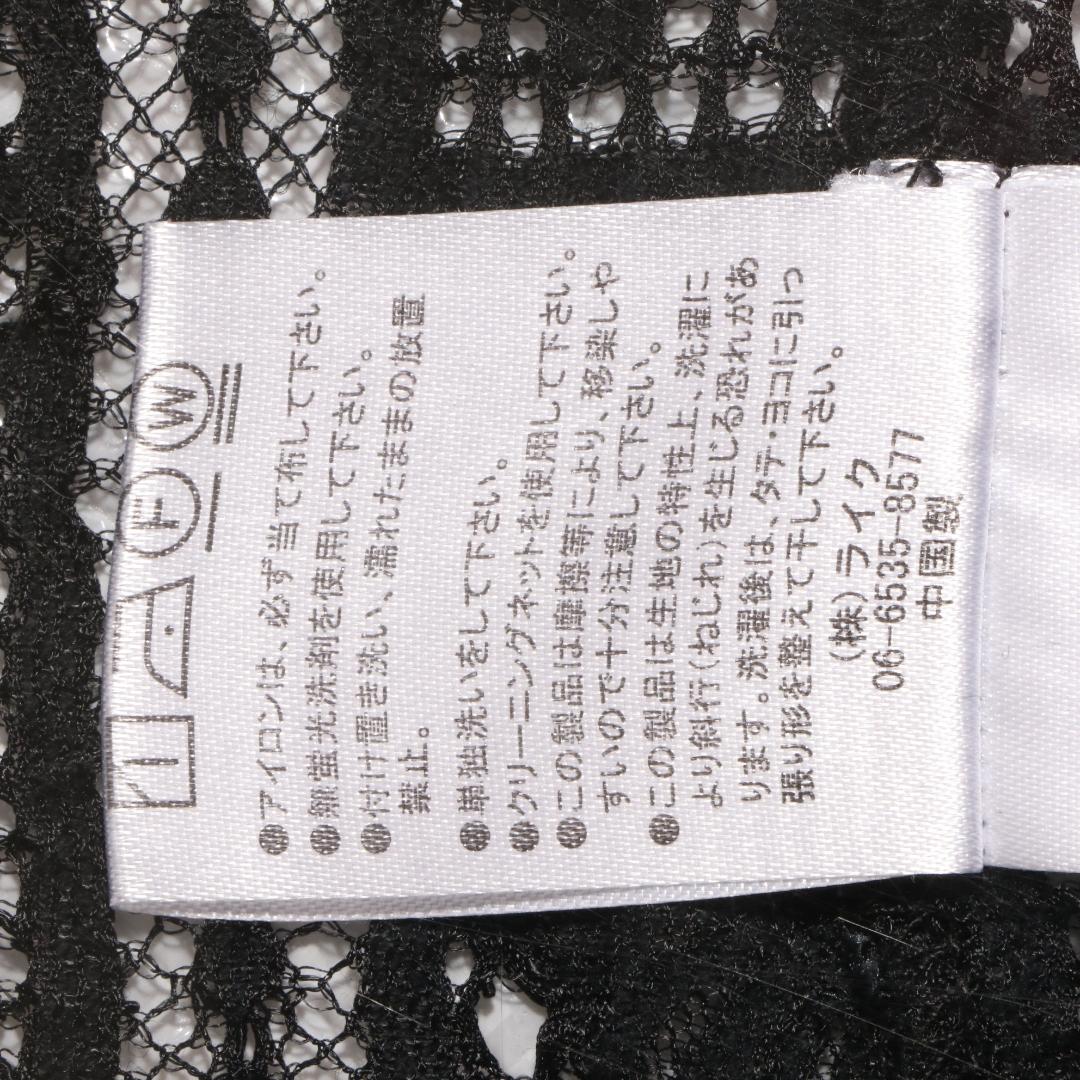 F W
●アイロンは、必ず当て布して下さい。
●無蛍光洗剤を使用して下さい。
●付け置き洗い、濡れたままの放置
禁止。
●単独洗いをして下さい。
●クリーニングネットを使用して下さい。
●この製品は摩擦等により、移染しや
すいので十分注意して下さい。
●この製品は生地の特性上、洗濯に
より斜行(ねじれ)を生じる恐れがあ
ります。洗濯後は、タテ・ヨコに引っ
張り形を整えて干して下さい。
(株)ライク
06-6535-8577
中国製